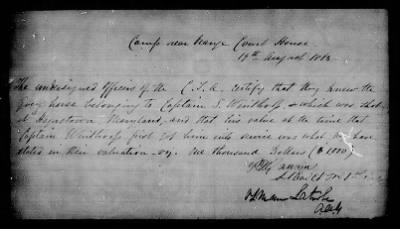 Camp near Orange Court House
19th August 1863
The undersigned officers of the C.S.A. certify that they knew the
Gray horse belonging to Captain S. Winthrop, & which was shot
at Hagerstown Maryland, and that his value at the time that
Captain Winthrop first got him into service was what we have
stated in their valuation viz. One thousand Dollars ($1000)
Osmun Latrobe